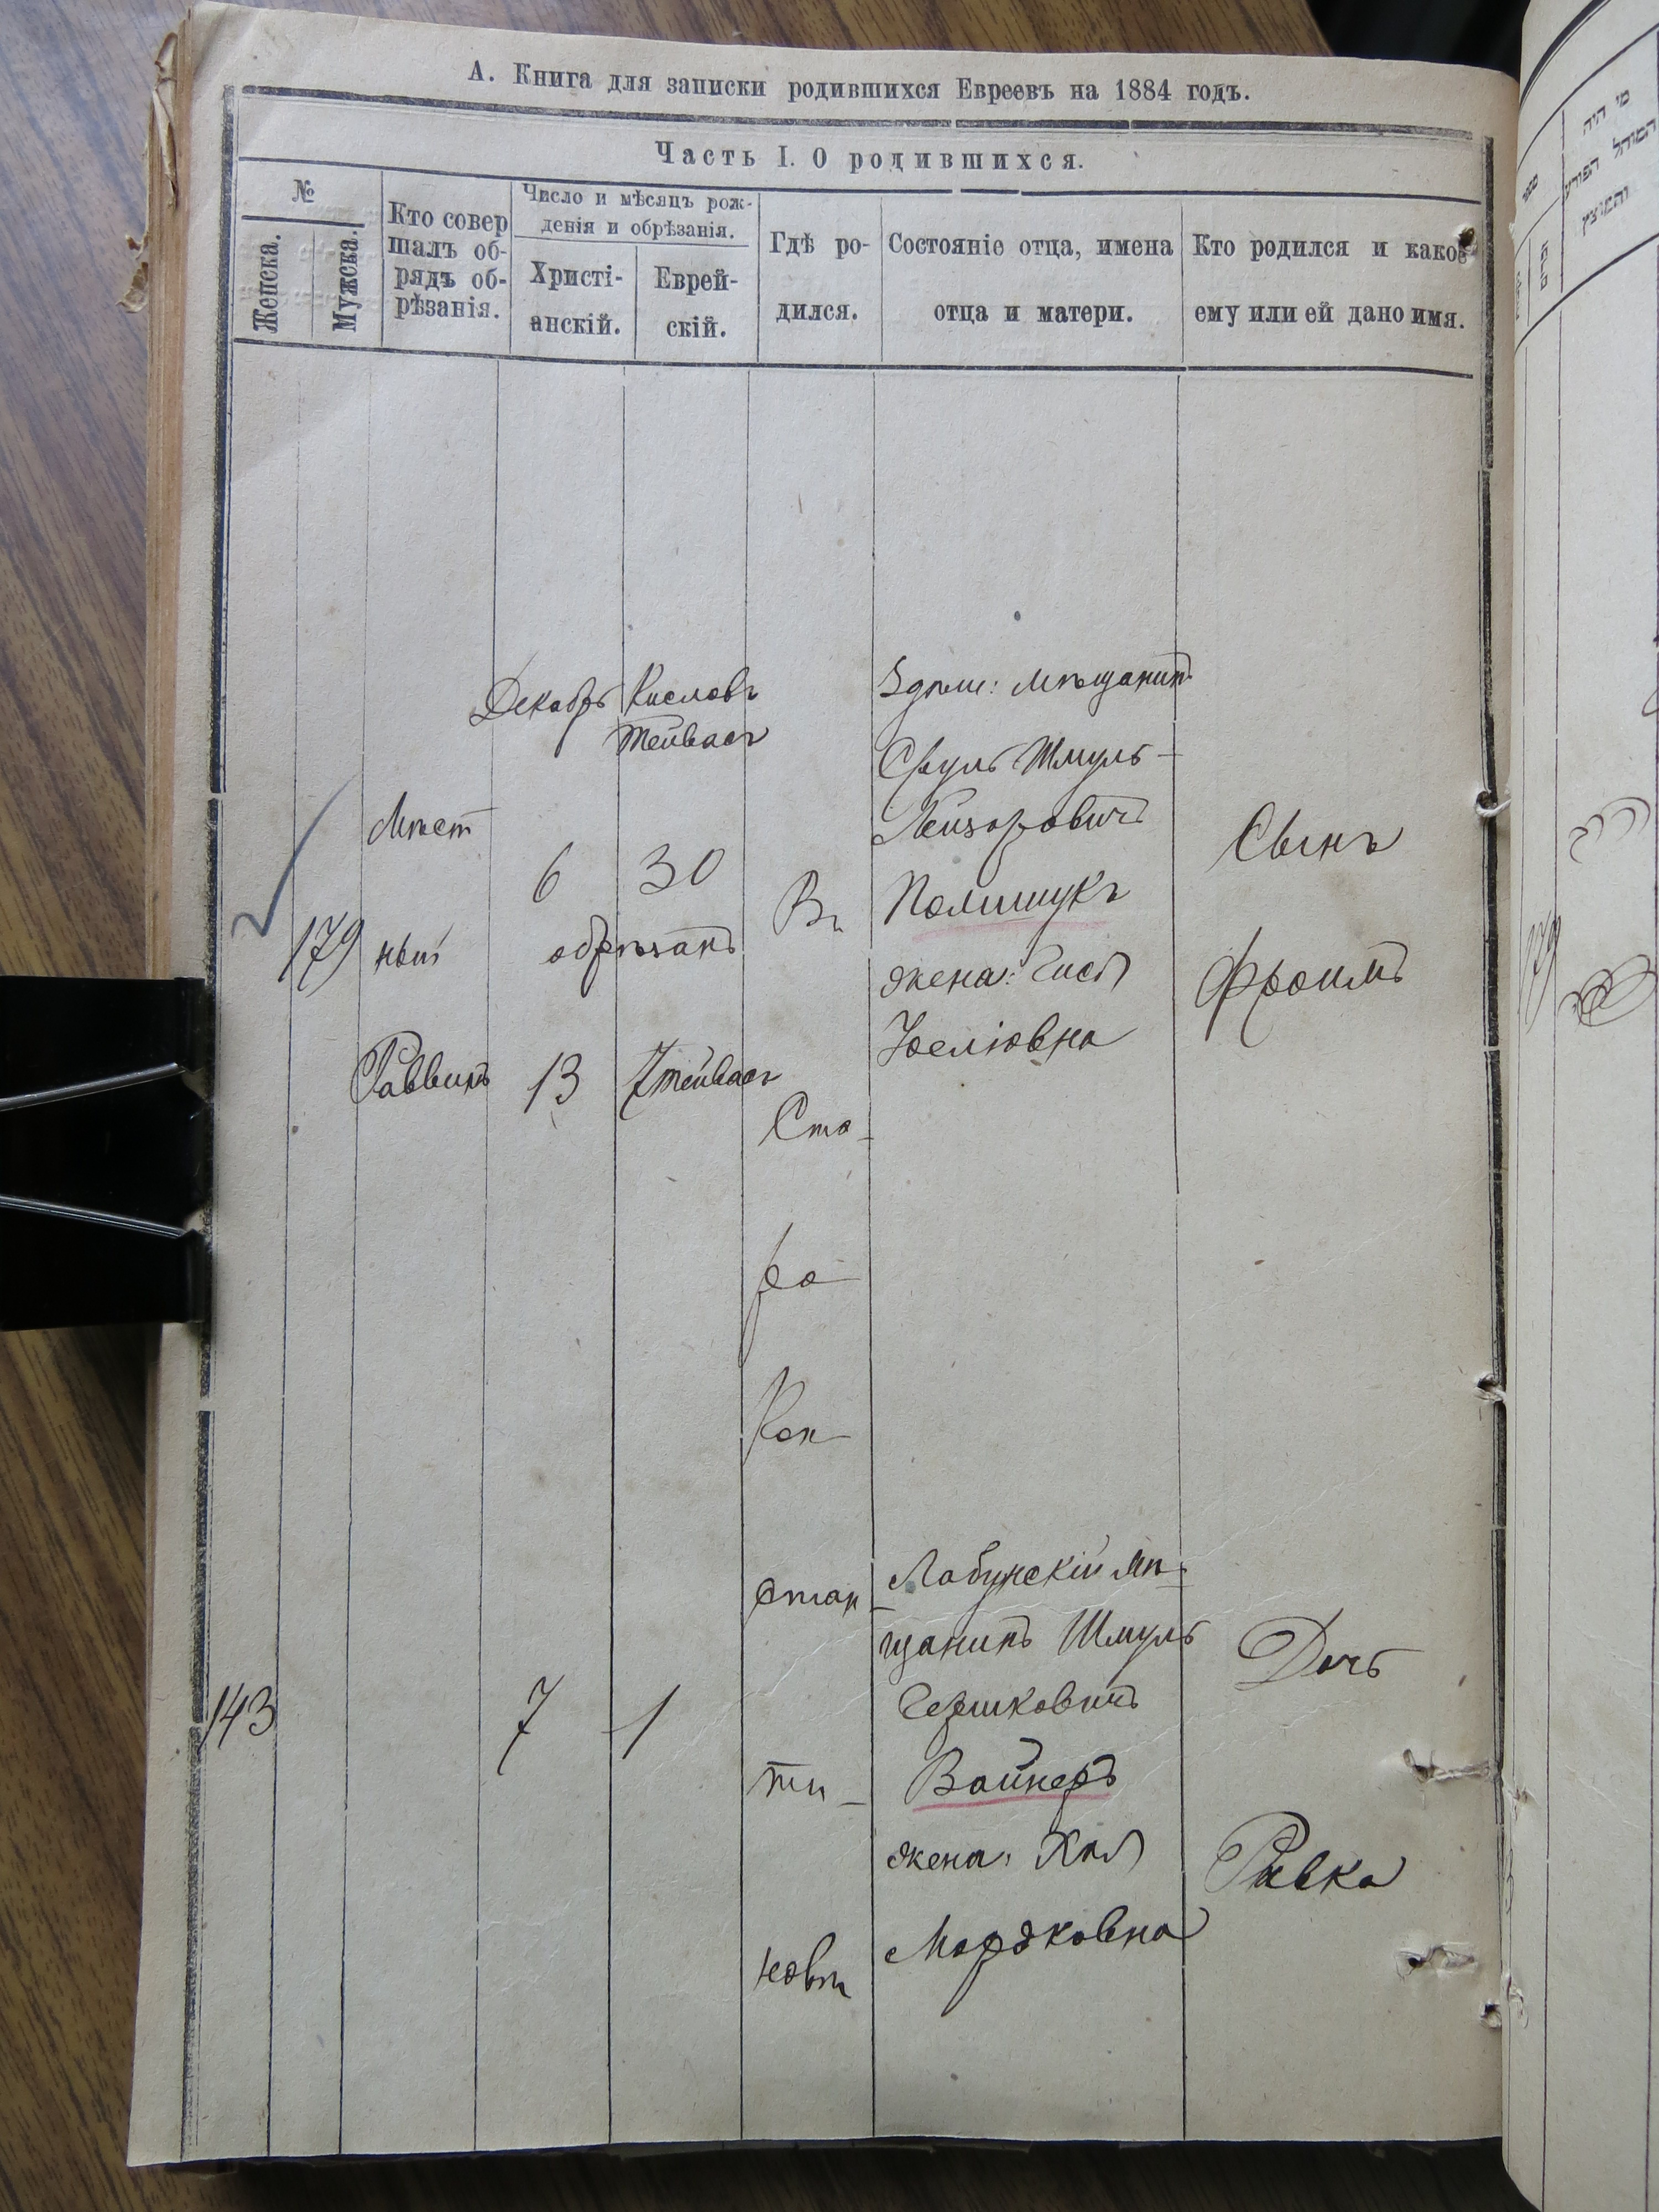 А. Книга для записки родившихся Евреевъ на 1884 годъ.
Часть I. О родившихся.
№
Женска.
Мужска.
Кто совер
шалъ об-
рядъ об-
рѣзанія.
Число и мѣсяцъ рож-
денія и обрѣзанія.
Христі-
анскій.
Еврей-
скій.
Гдѣ ро-
дился.
Состояніе отца, имена
отца и матери.
Кто родился и какое
ему или ей дано имя.
Декабрь
Кисловъ
Тейвасъ
179
Мѣст
ный
Раввинъ
6
30
обрѣзанъ
13
7 тейвасъ
Въ
Ста-
ро
Кон
стан-
ти-
новѣ
мѣщанинъ
Сруль Шмуль-
Лейзоровичъ
Полищукъ
жена: Гися
Іоселіовна
Сынъ
Фроимъ
143
7
1
Лабунскій мѣ-
щанинъ Шмуль
Гершковичъ
Вайнеръ
жена: Хая
Мордковна
Дочь
Ривка
מי היה
המוהל הפורע
והמוצץ
179